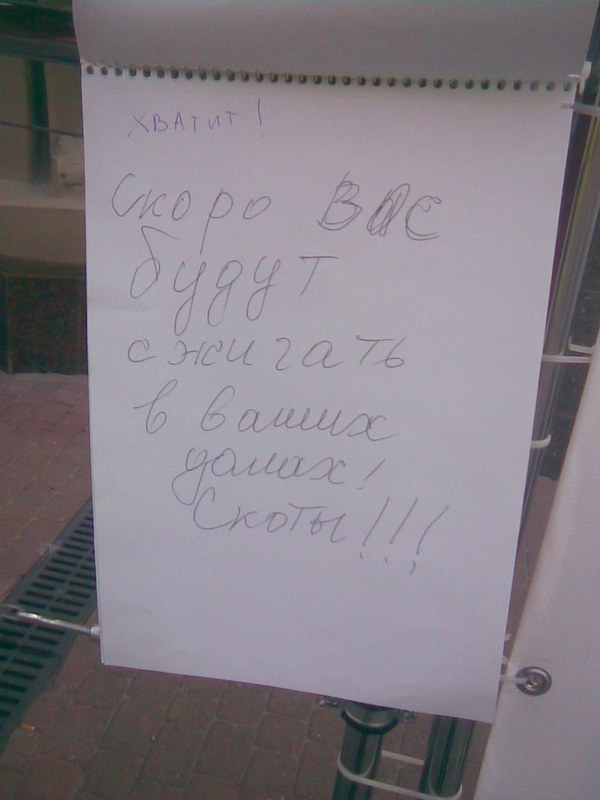 ХВАТИТ!
Скоро ВАС
будут
сжигать
в ваших
домах!
Скоты!!!